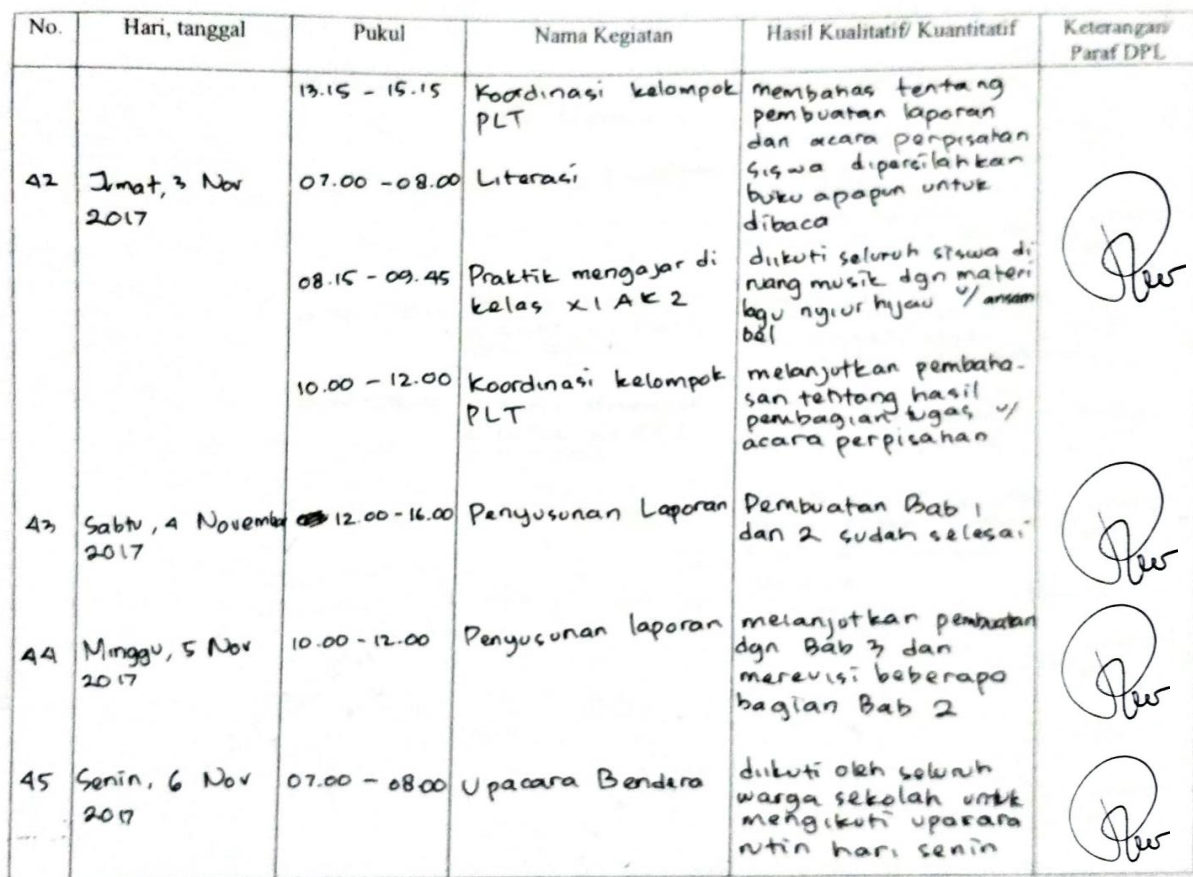 No. Hari, tanggal Pukul Nama Kegiatan Hasil Kualitatif/ Kuantitatif Keterangan/
Paraf DPL
13.15 - 15.15 Koordinasi kelompok membahas tentang
PLT pembuatan laporan
dan acara perpisahan
42 Jumat, 3 Nov 07.00 - 08.00 Literasi siswa dipersilahkan
2017 buku apapun untuk
dibaca
08.15 - 09.45 Praktik mengajar di diikuti seluruh siswa di
kelas XI AK 2 ruang musik dgn materi
lagu nyiur hijau u/ ansam
bel
10.00 - 12.00 Koordinasi kelompok melanjutkan pembaha-
PLT san tentang hasil
pembagian tugas u/
acara perpisahan
43 Sabtu, 4 November 12.00 - 16.00 Penyusunan Laporan Pembuatan Bab 1
2017 dan 2 sudah selesai
44 Minggu, 5 Nov 10.00 - 12.00 Penyusunan laporan melanjutkan pembuatan
2017 dgn Bab 3 dan
merevisi beberapa
bagian Bab 2
45 Senin, 6 Nov 07.00 - 08.00 Upacara Bendera diikuti oleh seluruh
2017 warga sekolah untuk
mengikuti upacara
rutin hari senin